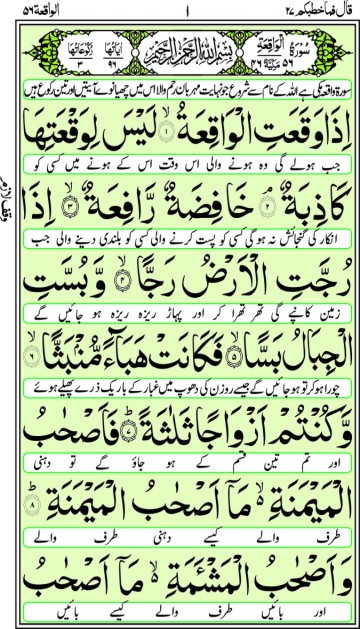 قال فما خطبكم ٢٧ ١ الواقعة ٥٦
سورة الواقعة ٥٦ مكية ٤٦ بسم الله الرحمن الرحيم آياتها ٩٦ ركوعاتها ٣
سورۃ واقعہ مکی ہے اللہ کے نام سے شروع جو نہایت مہربان رحم والا اس میں چھیانوے آیتیں اور تین رکوع ہیں
اِذَا وَقَعَتِ الْوَاقِعَةُ ۙ﴿۱﴾ لَيْسَ لِوَقْعَتِهَا
جب ہولے گی وہ ہونے والی اس وقت اس کے ہونے میں کسی کو
كَاذِبَةٌ ۘ﴿۲﴾ خَافِضَةٌ رَّافِعَةٌ ۙ﴿۳﴾ اِذَا
وقف لازم
انکار کی گنجائش نہ ہوگی کسی کو پست کرنے والی کسی کو بلندی دینے والی جب
رُجَّتِ الْاَرْضُ رَجًّا ۙ﴿۴﴾ وَّ بُسَّتِ
زمین کانپے گی تھر تھرا کر اور پہاڑ ریزہ ریزہ ہو جائیں گے
الْجِبَالُ بَسًّا ۙ﴿۵﴾ فَكَانَتْ هَبَآءً مُّنْۢبَثًّا ۙ﴿۶﴾
چورا ہو کر تو ہو جائیں گے جیسے روزن کی دھوپ میں غبار کے باریک ذرے پھیلے ہوئے
وَّ كُنْتُمْ اَزْوَاجًا ثَلٰثَةً ؕ﴿۷﴾ فَاَصْحٰبُ
اور تم تین قسم کے ہو جاؤ گے تو دہنی
الْمَيْمَنَةِ ۙ مَاۤ اَصْحٰبُ الْمَيْمَنَةِ ؕ﴿۸﴾
طرف والے کیسے دہنی طرف والے
وَ اَصْحٰبُ الْمَشْـَٔمَةِ ۙ مَاۤ اَصْحٰبُ
اور بائیں طرف والے کیسے بائیں